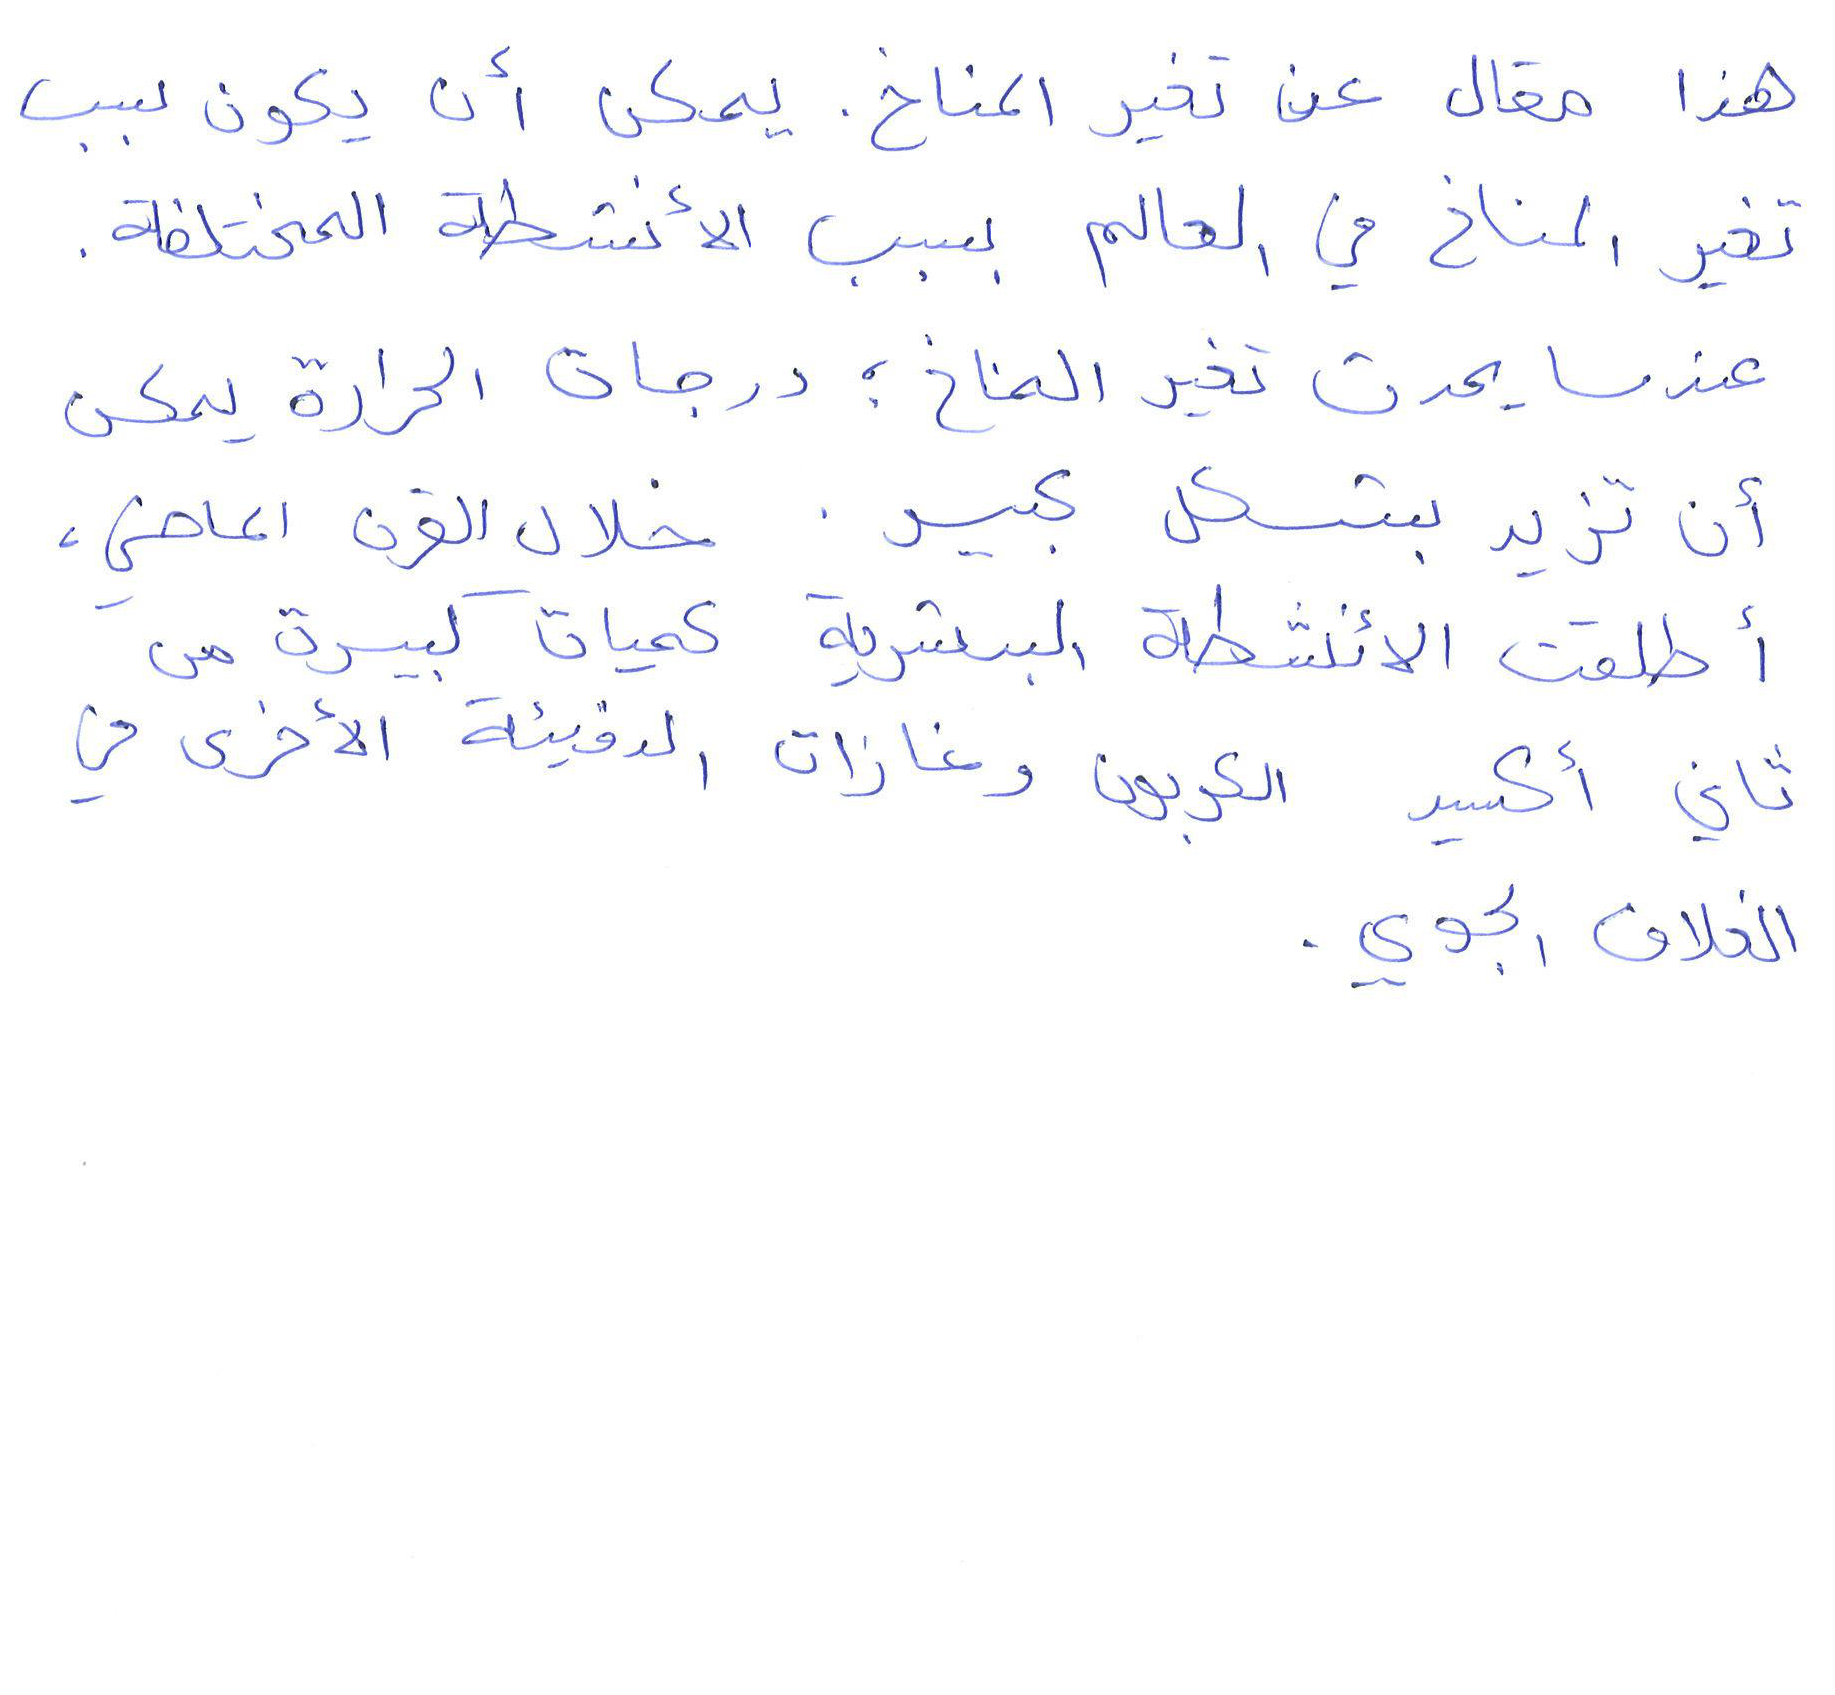 هذا مقال عن تغير المناخ. يمكن أن يكون سبب
تغير المناخ في العالم بسبب الأنشطة المختلفة.
عندما يحدث تغير المناخ؛ درجات الحرارة يمكن
أن تزيد بشكل كبير. خلال القرن الماضي،
أطلقت الأنشطة البشرية كميات كبيرة من
ثاني أكسيد الكربون وغازات الدفيئة الأخرى في
الغلاف الجوي.